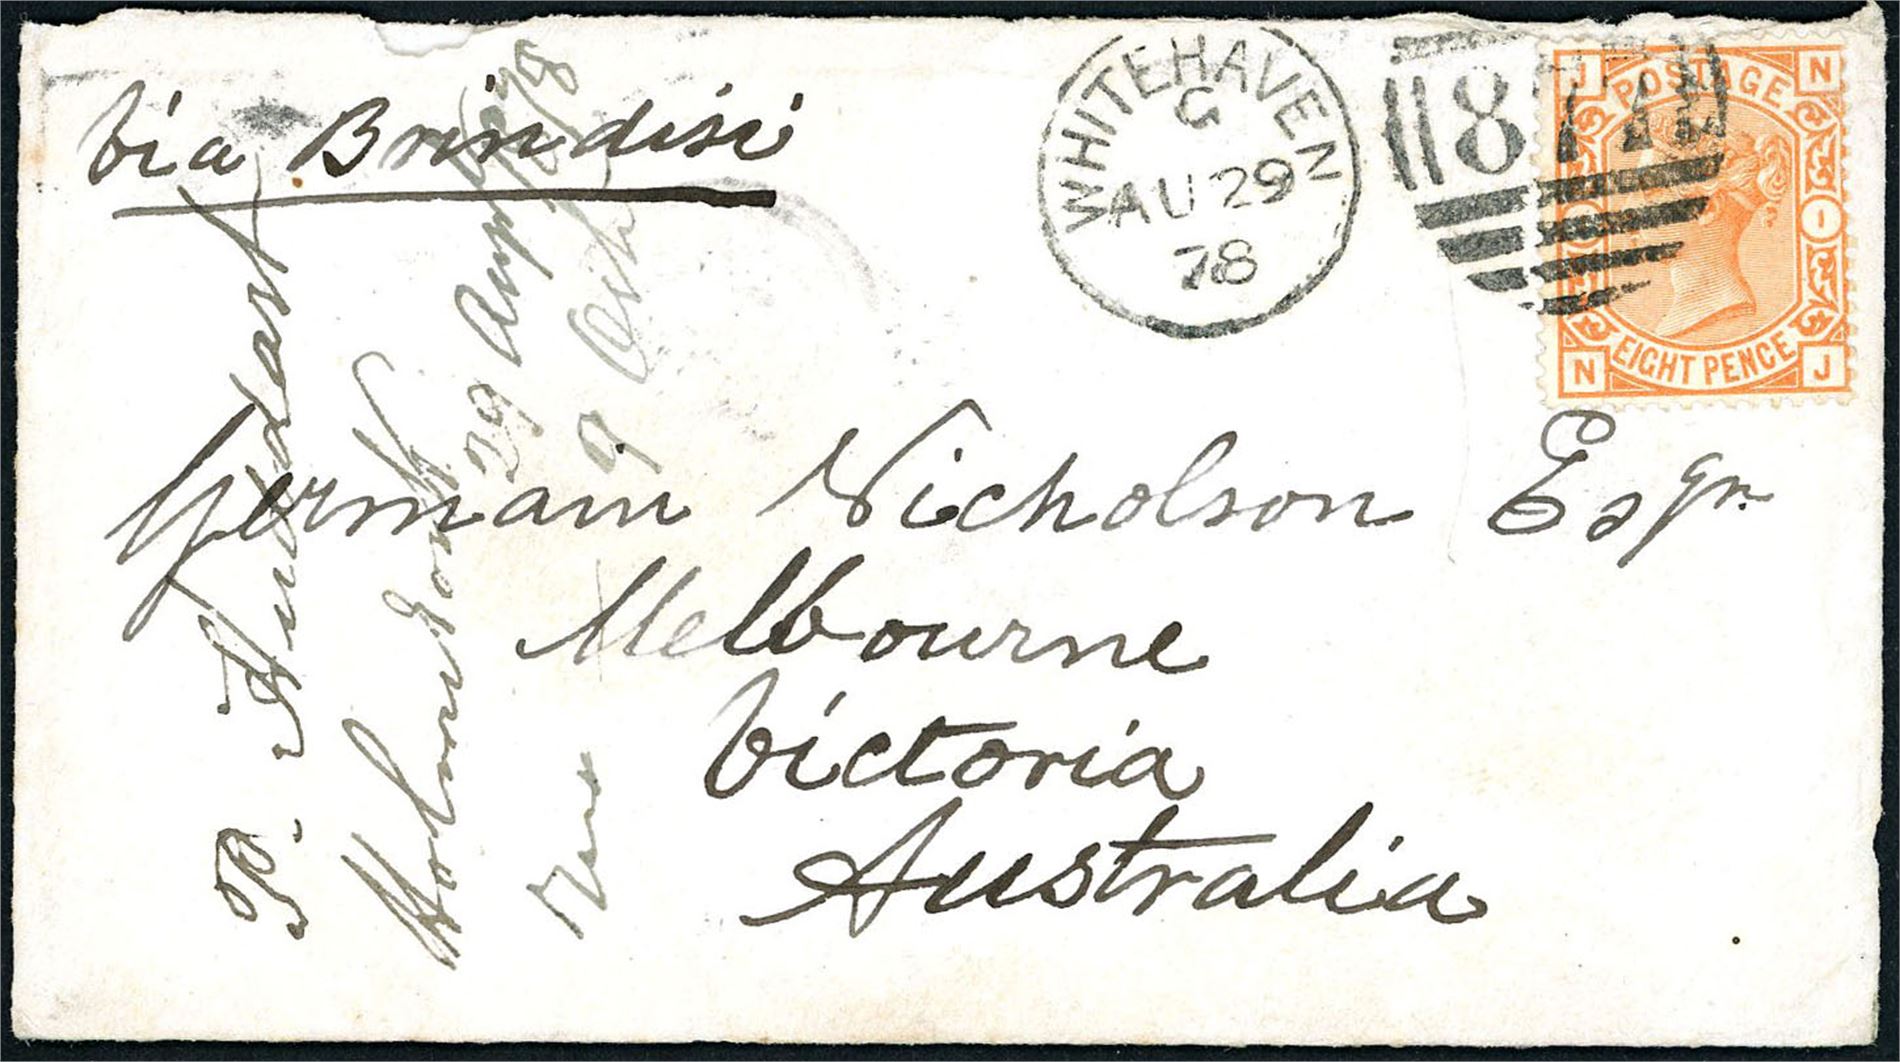 via Brindisi
WHITEHAVEN
G
AU 29
78
874
J POSTAGE N
1 1
EIGHT PENCE
N J
Germain Nicholson Esqr
Melbourne
Victoria
Australia
P.
29 Augt
9 Oct